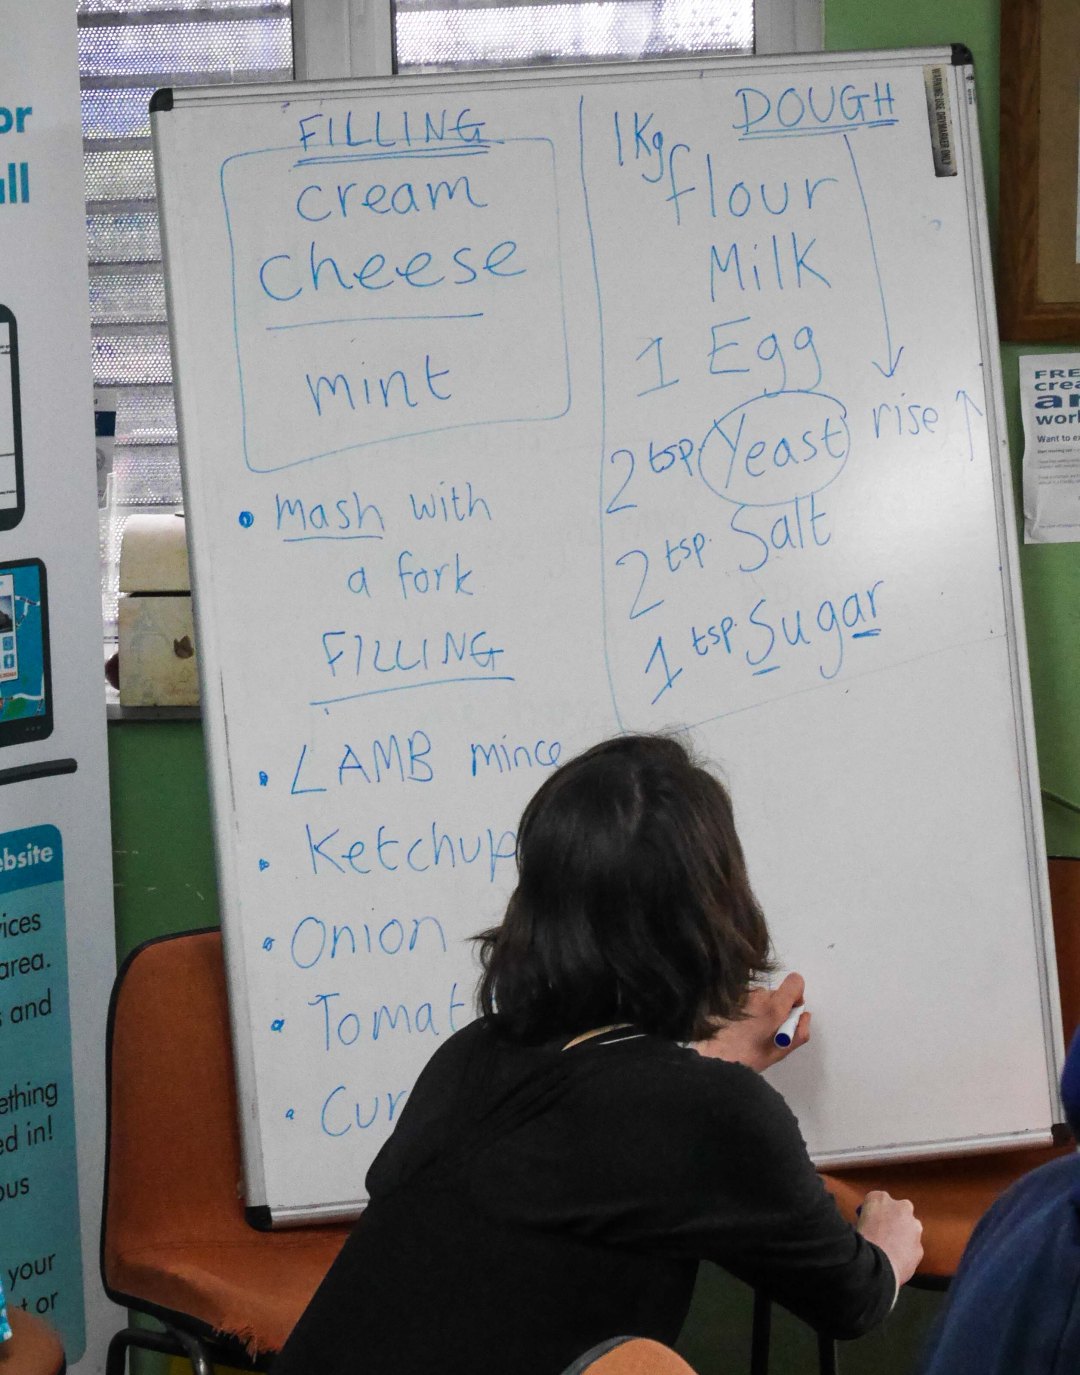 FILLING
cream
cheese
mint
• mash with
a fork
FILLING
• LAMB mince
• Ketchup
• Onion
• Tomat
• Cur
DOUGH
1Kg
flour
Milk
1 Egg
2 tsp Yeast rise ↑
2 tsp. Salt
1 tsp. Sugar
or
ll
ebsite
ices
area.
and
ething
ed in!
ous
your
t or
FRE
crea
an
worl
Want to ex